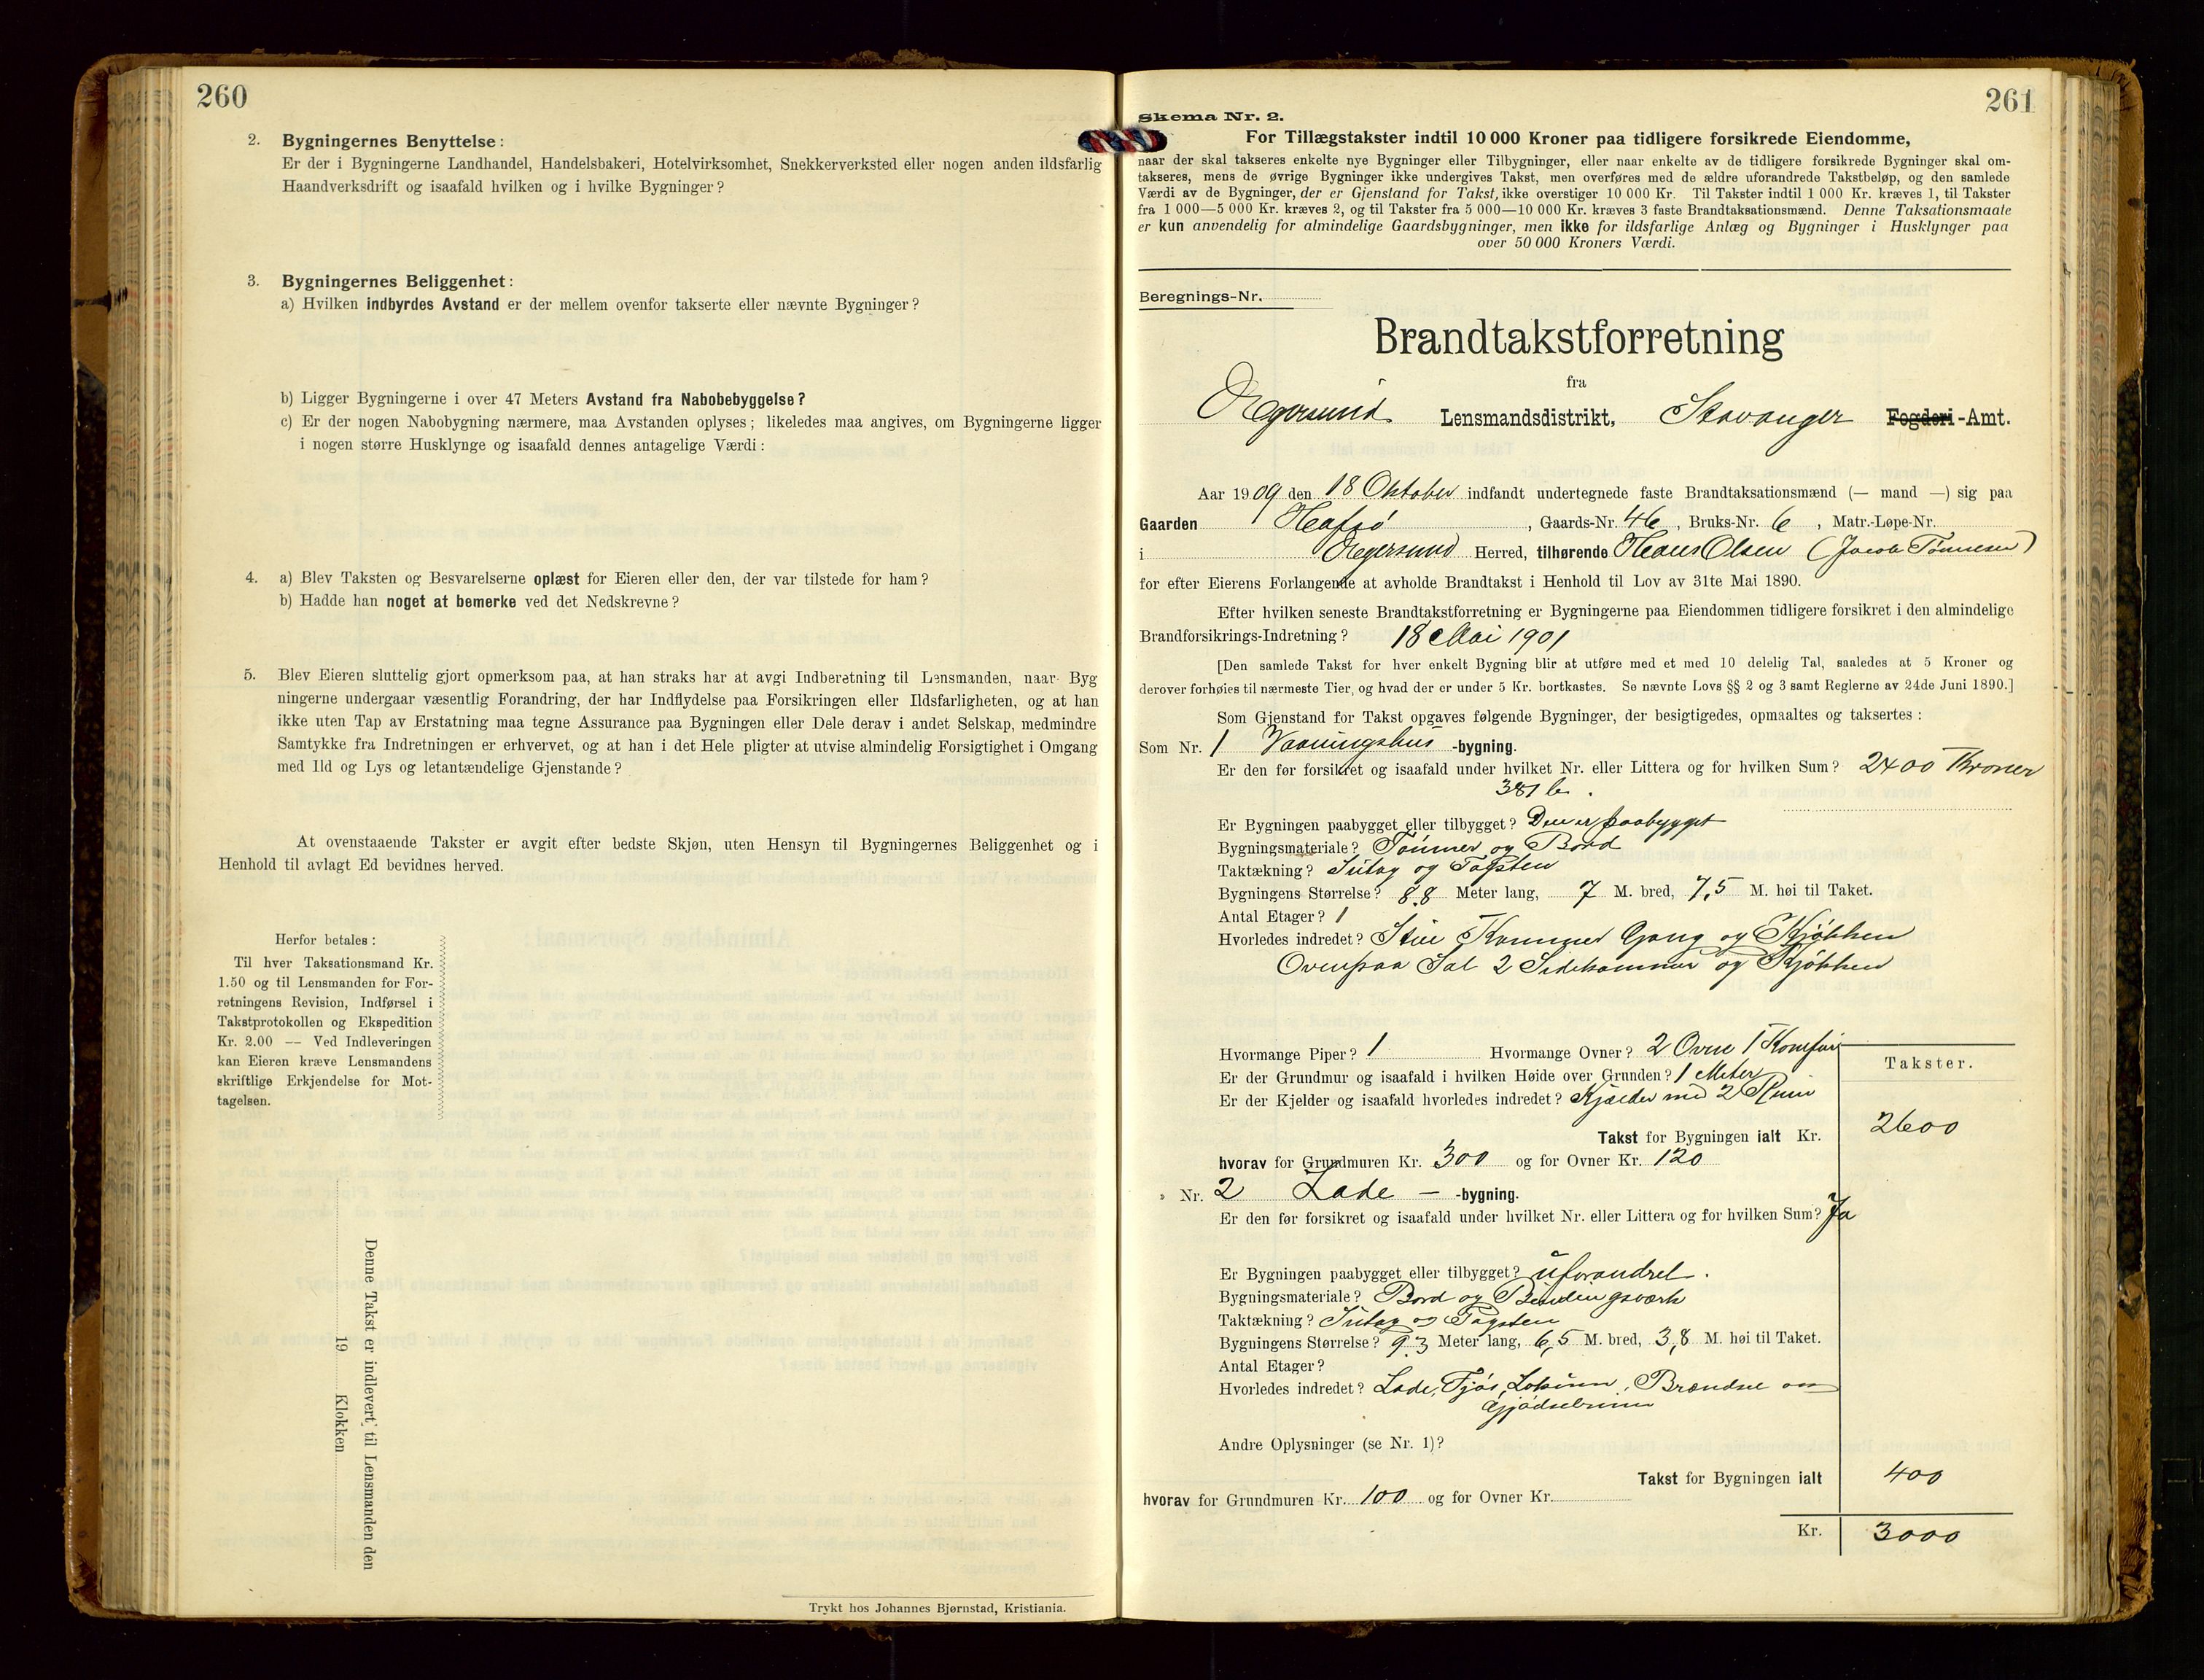 260
2. Bygningernes Benyttelse:
Er der i Bygningerne Landhandel, Handelsbakeri, Hotelvirksomhet, Snekkerverksted eller nogen anden ildsfarlig
Haandverksdrift og isaafald hvilken og i hvilke Bygninger?
3. Bygningernes Beliggenhet:
a) Hvilken indbyrdes Avstand er der mellem ovenfor takserte eller nævnte Bygninger?
b) Ligger Bygningerne i over 47 Meters Avstand fra Nabobebyggelse?
c) Er der nogen Nabobygning nærmere, maa Avstanden oplyses; likeledes maa angives, om Bygningerne ligger
i nogen større Husklynge og isaafald dennes antagelige Værdi:
4. a) Blev Taksten og Besvarelserne oplæst for Eieren eller den, der var tilstede for ham?
b) Hadde han noget at bemerke ved det Nedskrevne?
5. Blev Eieren sluttelig gjort opmerksom paa, at han straks har at avgi Indberetning til Lensmanden, naar Byg
ningerne undergaar væsentlig Forandring, der har Indflydelse paa Forsikringen eller Ildsfarligheten, og at han
ikke uten Tap av Erstatning maa tegne Assurance paa Bygningen eller Dele derav i andet Selskap, medmindre
Samtykke fra Indretningen er erhvervet, og at han i det Hele pligter at utvise almindelig Forsigtighet i Omgang
med Ild og Lys og letantændelige Gjenstande?
At ovenstaaende Takster er avgit efter bedste Skjøn, uten Hensyn til Bygningernes Beliggenhet og i
Henhold til avlagt Ed bevidnes herved.
Herfor betales:
Til hver Taksationsmand Kr.
1.50 og til Lensmanden for For-
retningens Revision, Indførsel i
Takstprotokollen og Ekspedition
Kr. 2.00 — Ved Indleveringen
kan Eieren kræve Lensmandens
skriftlige Erkjendelse for Mot-
tagelsen.
Denne Takst er indlevert til Lensmanden den
19 Klokken
Trykt hos Johannes Bjørnstad, Kristiania.
261
Skema Nr. 2.
For Tillægstakster indtil 10 000 Kroner paa tidligere forsikrede Eiendomme,
naar der skal takseres enkelte nye Bygninger eller Tilbygninger, eller naar enkelte av de tidligere forsikrede Bygninger skal om-
takseres, mens de øvrige Bygninger ikke undergives Takst, men overføres med de ældre uforandrede Takstbeløp, og den samlede
Værdi av de Bygninger, der er Gjenstand for Takst, ikke overstiger 10 000 Kr. Til Takster indtil 1 000 Kr. kræves 1, til Takster
fra 1 000—5 000 Kr. kræves 2, og til Takster fra 5 000—10 000 Kr. kræves 3 faste Brandtaksationsmænd. Denne Taksationsmaate
er kun anvendelig for almindelige Gaardsbygninger, men ikke for ildsfarlige Anlæg og Bygninger i Husklynger paa
over 50 000 Kroners Værdi.
Beregnings-Nr.
Brandtakstforretning
fra
Egersund Lensmandsdistrikt, Stavanger Fogderi-Amt.
Aar 1909 den 18 Oktober indfandt undertegnede faste Brandtaksationsmænd (— mand —) sig paa
Gaarden Hafsø, Gaards-Nr. 46, Bruks-Nr. 6, Matr.-Løpe-Nr.
i Egersund Herred, tilhørende Hans Olsen (Jacob Tønnesen)
for efter Eierens Forlangende at avholde Brandtakst i Henhold til Lov av 31te Mai 1890.
Efter hvilken seneste Brandtakstforretning er Bygningerne paa Eiendommen tidligere forsikret i den almindelige
Brandforsikrings-Indretning? 18 Mai 1901
[Den samlede Takst for hver enkelt Bygning blir at utføre med et med 10 delelig Tal, saaledes at 5 Kroner og
derover forhøies til nærmeste Tier, og hvad der er under 5 Kr. bortkastes. Se nævnte Lovs §§ 2 og 3 samt Reglerne av 24de Juni 1890.]
Som Gjenstand for Takst opgaves følgende Bygninger, der besigtigedes, opmaaltes og taksertes:
Som Nr. 1 Vaaningshus -bygning.
Er den før forsikret og isaafald under hvilket Nr. eller Littera og for hvilken Sum? 2400 Kroner
381 b.
Er Bygningen paabygget eller tilbygget? Den er paabygget
Bygningsmateriale? Tømmer og Bord
Taktækning? Sutag og Tagsten
Bygningens Størrelse? 8.8 Meter lang, 7 M. bred, 7,5 M. høi til Taket.
Antal Etager? 1
Hvorledes indredet? Stue Kammer Gang og Kjøkken
Ovenpaa Sal 2 Sidekammer og Kjøkken
Hvormange Piper? 1 Hvormange Ovner? 2 Ovne 1 Komfur
Er der Grundmur og isaafald i hvilken Høide over Grunden? 1 Meter
Er der Kjelder og isaafald hvorledes indredet? Kjælder med 2 Rum
Takster.
Takst for Bygningen ialt Kr. 2600
hvorav for Grundmuren Kr. 300 og for Ovner Kr. 120
Nr. 2 Lade — -bygning.
Er den før forsikret og isaafald under hvilket Nr. eller Littera og for hvilken Sum? Ja
Er Bygningen paabygget eller tilbygget? uforandret.
Bygningsmateriale? Bord og Bindingsværk
Taktækning? Sutag og Tagsten
Bygningens Størrelse? 9.3 Meter lang, 6,5 M. bred, 3,8 M. høi til Taket.
Antal Etager?
Hvorledes indredet? Lade, Fjøs, Brændsel og
Gjødselrum
Andre Oplysninger (se Nr. 1)?
Takst for Bygningen ialt 400
hvorav for Grundmuren Kr. 100 og for Ovner Kr.
Kr. 3000